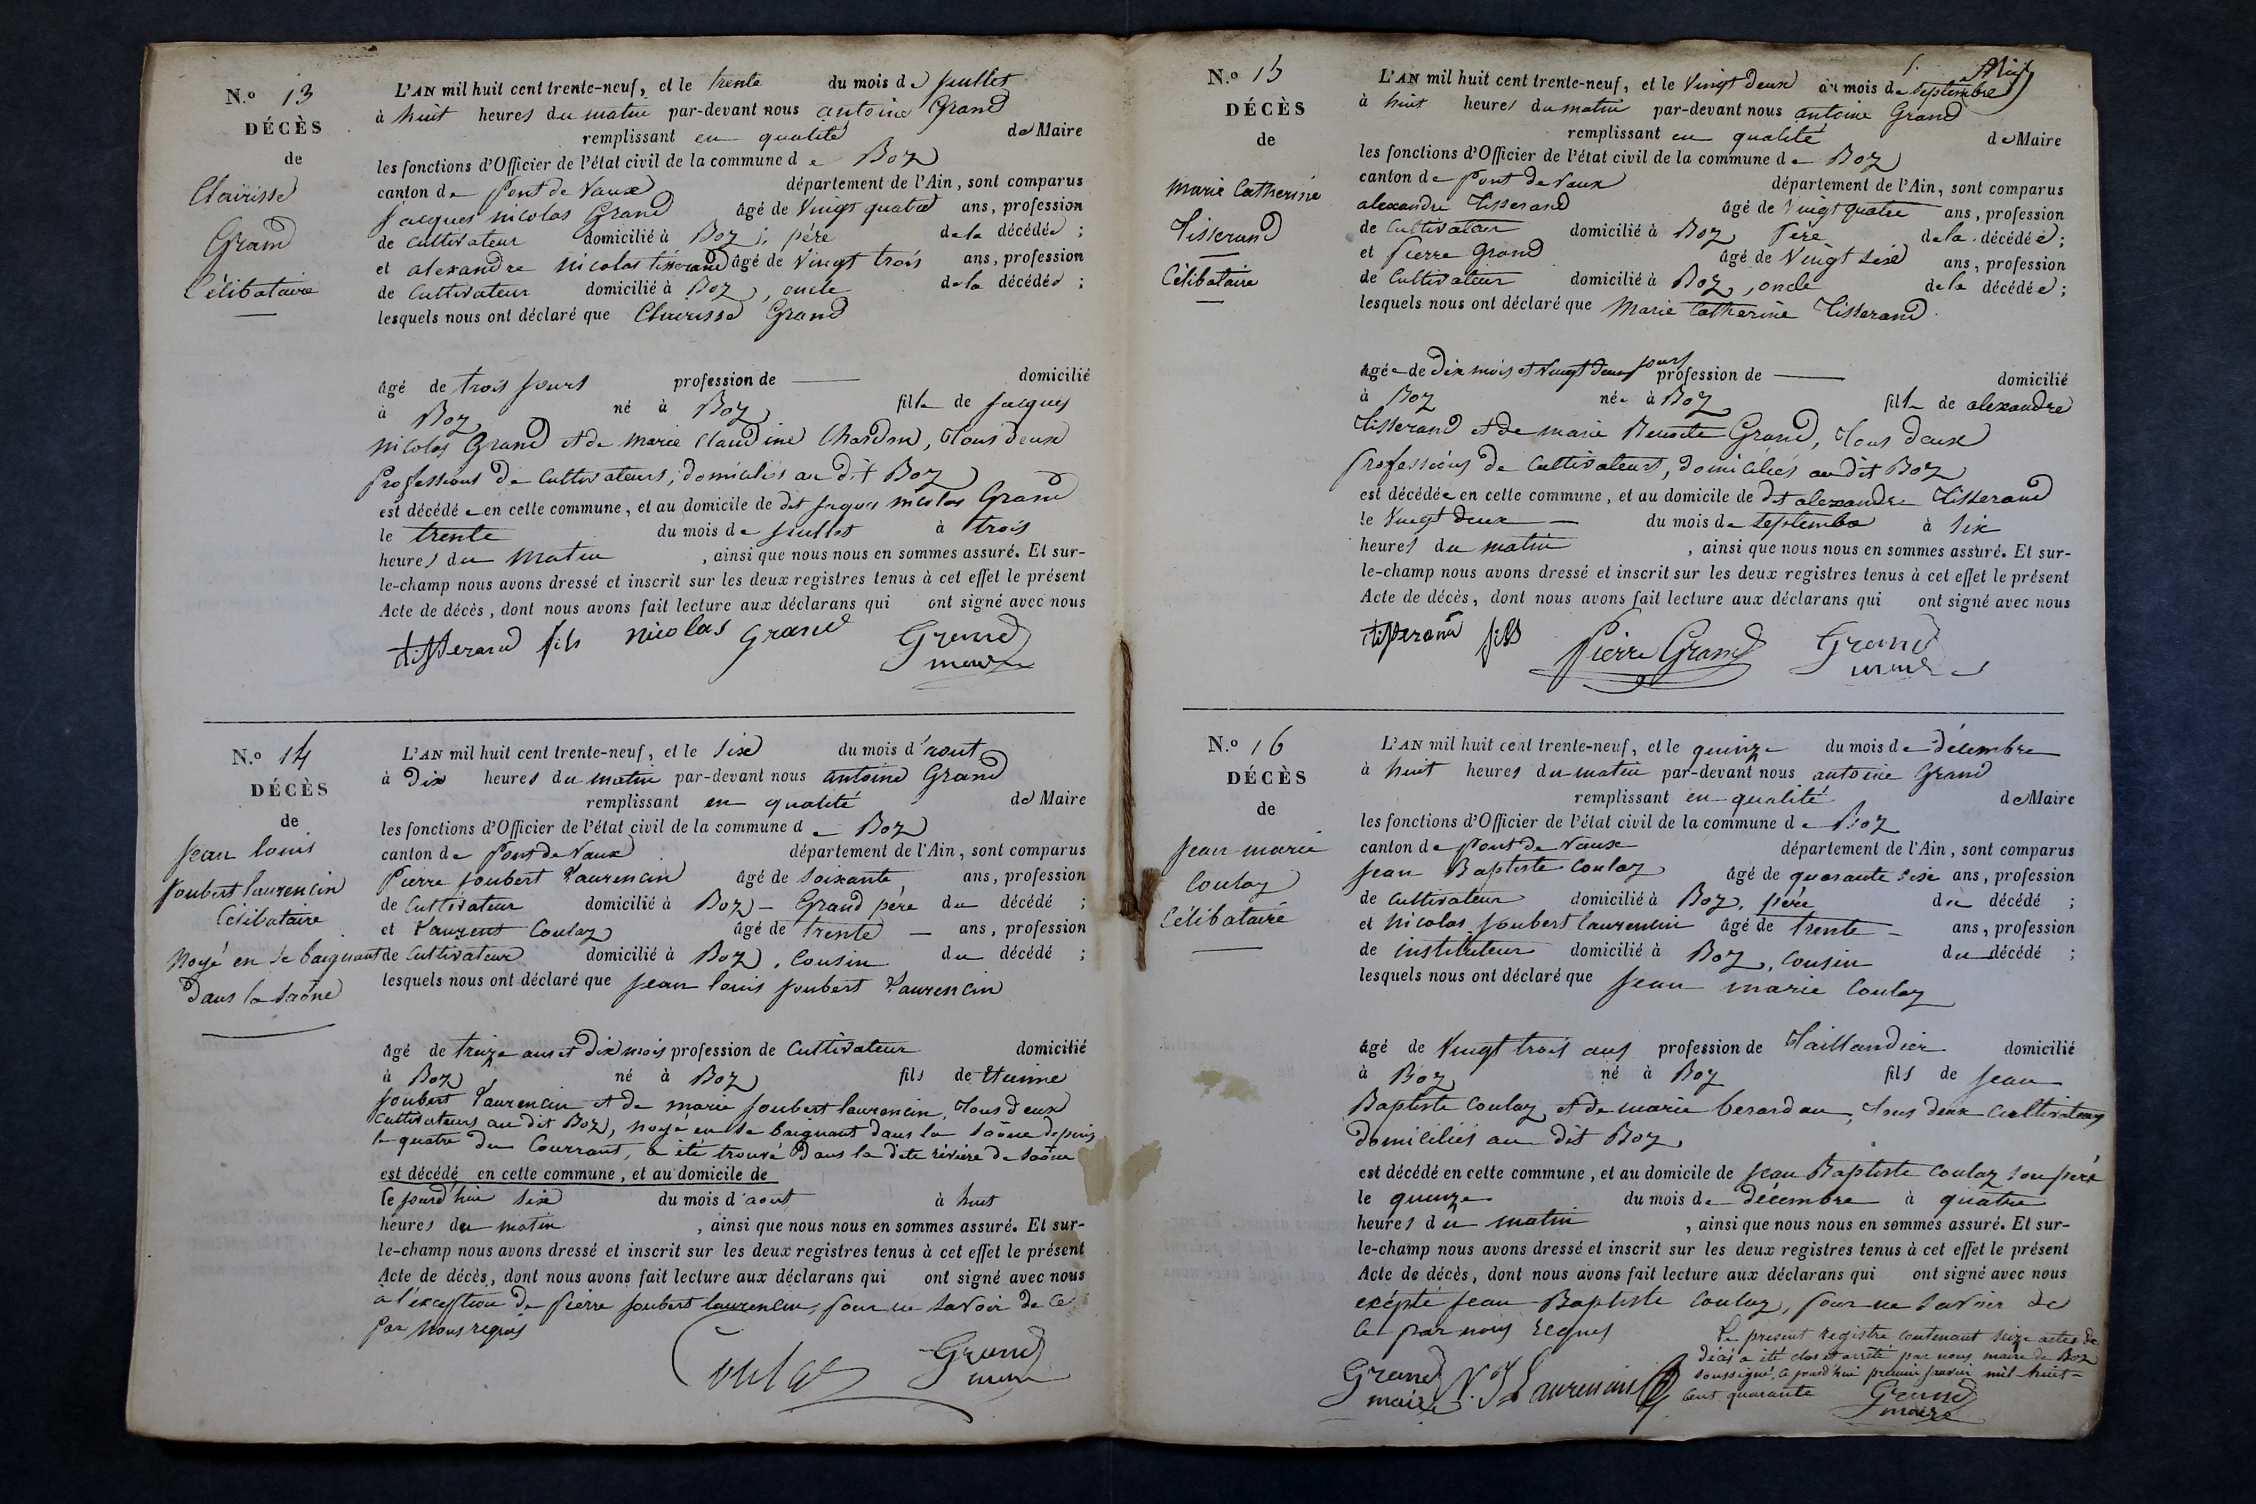 N.º 13
DÉCÈS
de
Clairisse
Grand
Célibataire
L'AN mil huit cent trente-neuf, et le trente du mois de juillet
à huit heures du matin par-devant nous antoine Grand
remplissant en qualité de Maire
les fonctions d'Officier de l'état civil de la commune de Boz
canton de Pont de Vaux département de l'Ain, sont comparus
jacques nicolas Grand âgé de Vingt quatre ans, profession
de cultivateur domicilié à Boz, père de la décédée ;
et alexandre nicolas tisserand âgé de Vingt trois ans, profession
de Cultivateur domicilié à Boz, oncle de la décédée ;
lesquels nous ont déclaré que Clairisse Grand
âgé de trois jours profession de — domicilié
à Boz né à Boz fille de jacques
nicolas Grand et de marie Claudine Chardon, tous deux
Professions de Cultivateurs, domiciliés au dit Boz
est décédée en cette commune, et au domicile de dit jaques nicolas Grand
le trente du mois de juillet à trois
heures du matin, ainsi que nous nous en sommes assuré. Et sur-
le-champ nous avons dressé et inscrit sur les deux registres tenus à cet effet le présent
Acte de décès, dont nous avons fait lecture aux déclarans qui ont signé avec nous
tisserand fils nicolas grand Grand
maire
N.º 14
DÉCÈS
de
jean louis
joubert laurencin
Célibataire
noyé en se baignant
dans la saône
L'AN mil huit cent trente-neuf, et le six du mois d'aout
à Dix heures du matin par-devant nous antoine Grand
remplissant en qualité de Maire
les fonctions d'Officier de l'état civil de la commune de Boz
canton de Pont de Vaux département de l'Ain, sont comparus
Pierre joubert Laurencin âgé de soixante ans, profession
de Cultivateur domicilié à Boz - Grand père du décédé ;
et Laurent Coulaz âgé de trente — ans, profession
de Cultivateur domicilié à Boz, Cousin du décédé ;
lesquels nous ont déclaré que jean louis joubert Laurencin
âgé de treize ans et dix mois profession de Cultivateur domicilié
à Boz né à Boz fils de Etienne
joubert Laurencin et de marie joubert laurencin, tous deux
Cultivateurs au dit Boz, noyé en se baignant dans la saône depuis
le quatre du Courrant, a été trouvé dans la dite rivière de saône
est décédé en cette commune, et au domicile de
Ce jourd'hui six du mois d'aout à huit
heures du matin, ainsi que nous nous en sommes assuré. Et sur-
le-champ nous avons dressé et inscrit sur les deux registres tenus à cet effet le présent
Acte de décès, dont nous avons fait lecture aux déclarans qui ont signé avec nous
a l'exception de pierre joubert laurencin, pour ne savoir de ce
par nous requis
Coulaz Grand
maire
N.º 15
DÉCÈS
de
marie Catherine
Tisserand
Célibataire
L'AN mil huit cent trente-neuf, et le Vingt deux du mois de septembre
à huit heures du matin par-devant nous antoine Grand
remplissant en qualité de Maire
les fonctions d'Officier de l'état civil de la commune de Boz
canton de Pont de Vaux département de l'Ain, sont comparus
alexandre Tisserand âgé de Vingt quatre ans, profession
de Cultivateur domicilié à Boz, Père de la décédée ;
et Pierre Grand âgé de Vingt six ans, profession
de Cultivateur domicilié à Boz, oncle de la décédée ;
lesquels nous ont déclaré que Marie Catherine Tisserand
âgée de dix mois et vingt deux jours profession de — domicilié
à Boz née à Boz fille de alexandre
Tisserand et de marie Benoite Grand, tous deux
professions de cultivateurs, domiciliés au dit Boz
est décédée en cette commune, et au domicile de dit alexandre Tisserand
le Vingt deux — du mois de septembre à six
heures du matin, ainsi que nous nous en sommes assuré. Et sur-
le-champ nous avons dressé et inscrit sur les deux registres tenus à cet effet le présent
Acte de décès, dont nous avons fait lecture aux déclarans qui ont signé avec nous
tisserand fils Pierre Grand Grand
maire
N.º 16
DÉCÈS
de
jean marie
Coulaz
Célibataire
L'AN mil huit cent trente-neuf, et le quinze du mois de décembre
à huit heures du matin par-devant nous antoine Grand
remplissant en qualité de Maire
les fonctions d'Officier de l'état civil de la commune de Boz
canton de Pont de Vaux département de l'Ain, sont comparus
jean Baptiste Coulaz âgé de quarante six ans, profession
de cultivateur domicilié à Boz, père du décédé ;
et nicolas joubert laurencin âgé de trente - ans, profession
de instituteur domicilié à Boz, cousin du décédé ;
lesquels nous ont déclaré que jean marie Coulaz
âgé de Vingt trois ans profession de Taillandier domicilié
à Boz né à Boz fils de jean
Baptiste Coulaz et de marie berardan, tous deux cultivateurs
domiciliés au dit Boz
est décédé en cette commune, et au domicile de jean Baptiste Coulaz son père
le quinze du mois de décembre à quatre
heures du matin, ainsi que nous nous en sommes assuré. Et sur-
le-champ nous avons dressé et inscrit sur les deux registres tenus à cet effet le présent
Acte de décès, dont nous avons fait lecture aux déclarans qui ont signé avec nous
excépté jean Baptiste Coulaz, pour ne savoir de
ce par nous requis
Grand
maire N. J Laurencin
Le present registre contenant seize actes de
décès a été clos et arrêté par nous maire de Boz
soussigné, ce jourd'hui premier janvier mil huit-
cent quarante Grand
maire